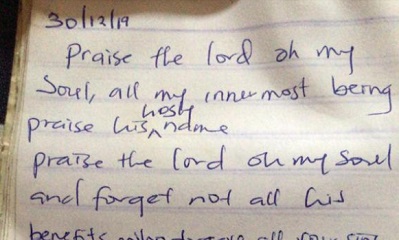 30/12/19
Praise the lord oh my
Soul, all my innermost being
holy
praise his ^ name
praise the lord oh my soul
and forget not all his
benefits who all your